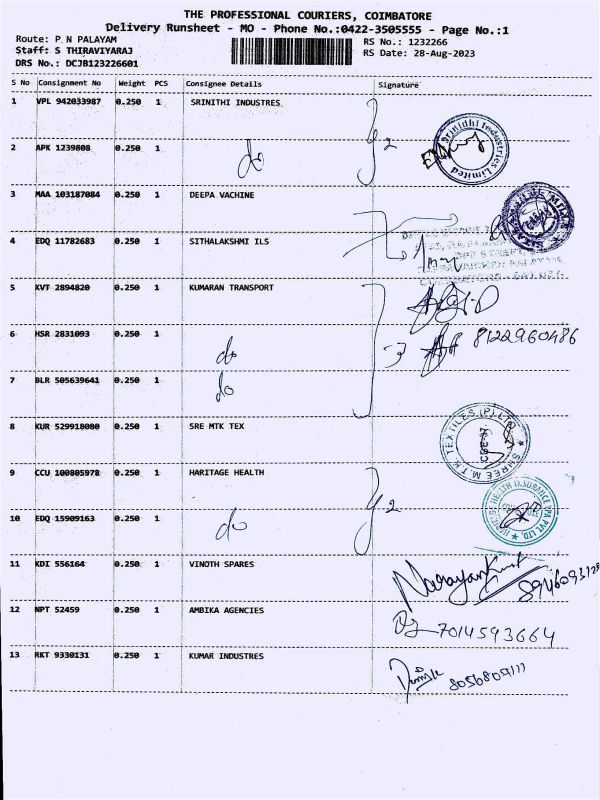 THE PROFESSIONAL COURIERS, COIMBATORE
Delivery Runsheet - MO - Phone No.:0422-3505555 - Page No.:1
Route: P N PALAYAM
RS No.: 1232266
Staff: S THIRAVIYARAJ
RS Date: 28-Aug-2023
DRS No.: DCJB123226601
S No Consignment No Weight PCS Consignee Details Signature
1 VPL 942033987 0.250 1 SRINITHI INDUSTRES
Srinidhi Industries Limited
2 APK 1239808 0.250 1 do 2
3 MAA 103187084 0.250 1 DEEPA VACHINE
4 EDQ 11782683 0.250 1 SITHALAKSHMI ILS
5 KVT 2894820 0.250 1 KUMARAN TRANSPORT
6 HSR 2831093 0.250 1 do 3 8122960486
7 BLR 505639641 0.250 1 do
8 KUR 529918080 0.250 1 SRE MTK TEX
SHREE M.T.K. TEXTILES (P) LTD
9 CCU 100805978 0.250 1 HARITAGE HEALTH
HERITAGE HEALTH INSURANCE TPA PVT. LTD.
10 EDQ 15909163 0.250 1 do 2
11 KDI 556164 0.250 1 VINOTH SPARES
12 NPT 52459 0.250 1 AMBIKA AGENCIES
7014593664
13 RKT 9330131 0.250 1 KUMAR INDUSTRES
8056809111